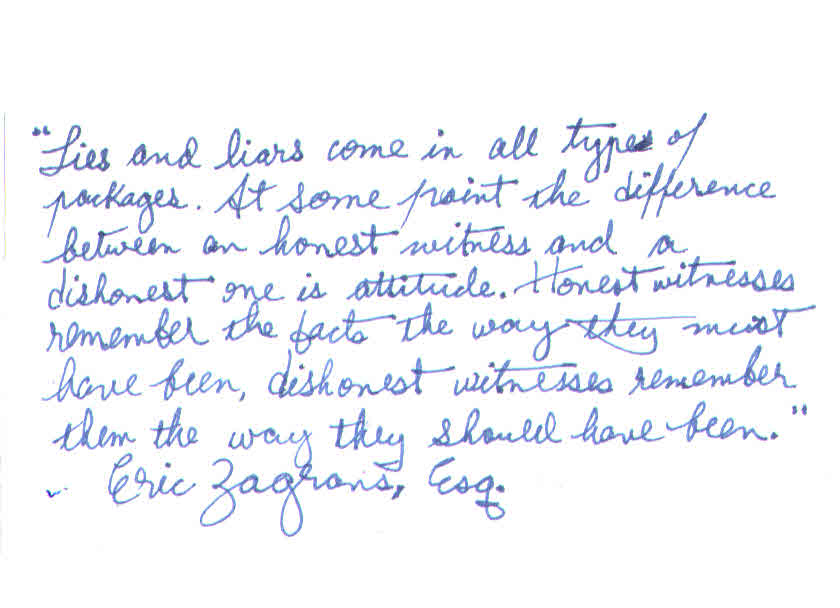 "Lies and liars come in all types of
packages. At some point the difference
between an honest witness and a
dishonest one is attitude. Honest witnesses
remember the facts the way they must
have been, dishonest witnesses remember
them the way they should have been."
Eric Zagrans, Esq.